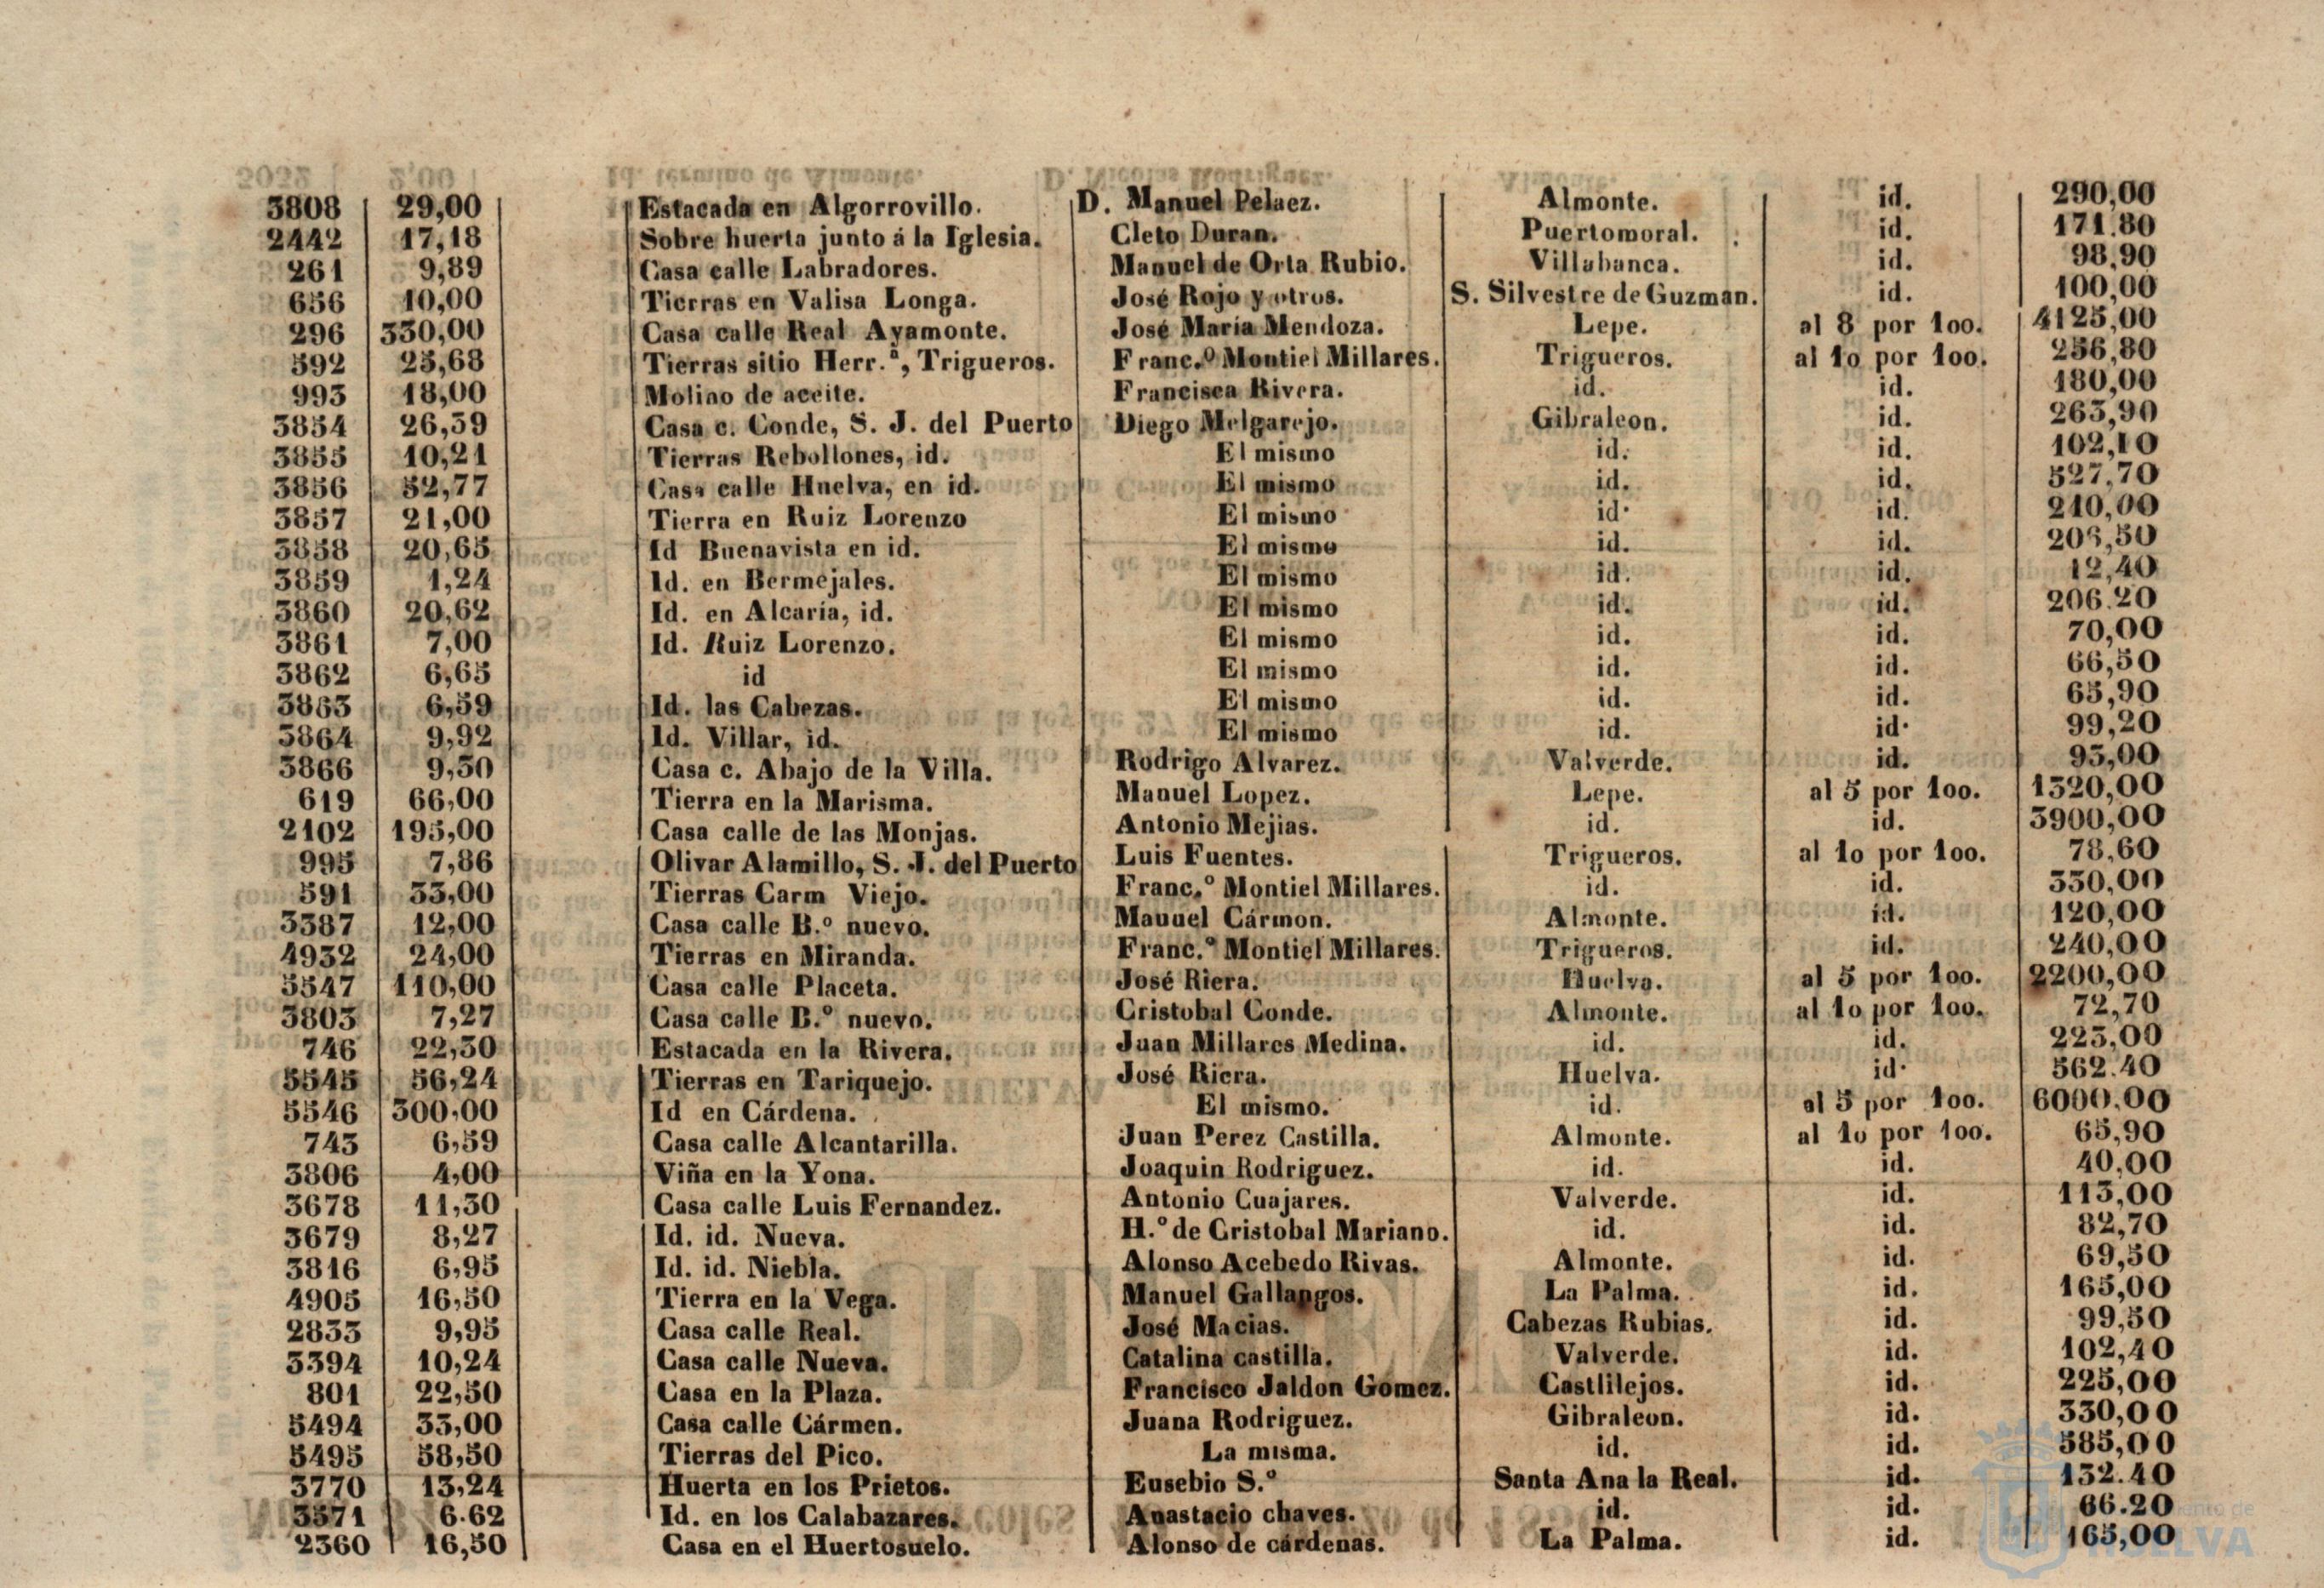 3808 29,00 Estacada en Algorrovillo. D. Manuel Pelaez. Almonte. id. 290,00
2442 17,18 Sobre huerta junto á la Iglesia. Cleto Duran. Puertomoral. id. 171.80
261 9,89 Casa calle Labradores. Manuel de Orta Rubio. Villabanca. id. 98,90
656 10,00 Tierras en Valisa Longa. José Rojo y otros. S. Silvestre de Guzman. id. 100,00
296 330,00 Casa calle Real Ayamonte. José María Mendoza. Lepe. al 8 por 100. 4125,00
592 25,68 Tierras sitio Herr.ª, Trigueros. Franc.º Montiel Millares. Trigueros. al 10 por 100. 256,80
993 18,00 Molino de aceite. Francisca Rivera. id. id. 180,00
3854 26,39 Casa c. Conde, S. J. del Puerto Diego Melgarejo. Gibraleon. id. 263,90
3855 10,21 Tierras Rebollones, id. El mismo id. id. 102,10
3856 52,77 Casa calle Huelva, en id. El mismo id. id. 527,70
3857 21,00 Tierra en Ruiz Lorenzo El mismo id. id. 210,00
3858 20,65 Id Buenavista en id. El mismo id. id. 206,50
3859 1,24 Id. en Bermejales. El mismo id. id. 12,40
3860 20,62 Id. en Alcaría, id. El mismo id. id. 206.20
3861 7,00 Id. Ruiz Lorenzo. El mismo id. id. 70,00
3862 6,65 id El mismo id. id. 66,50
3863 6,59 Id. las Cabezas. El mismo id. id. 65,90
3864 9,92 Id. Villar, id. El mismo id. id. 99,20
3866 9,30 Casa c. Abajo de la Villa. Rodrigo Alvarez. Valverde. id. 93,00
619 66,00 Tierra en la Marisma. Manuel Lopez. Lepe. al 5 por 100. 1320,00
2102 195,00 Casa calle de las Monjas. Antonio Mejias. id. id. 3900,00
995 7,86 Olivar Alamillo, S. J. del Puerto Luis Fuentes. Trigueros. al 10 por 100. 78,60
591 33,00 Tierras Carm Viejo. Franc.º Montiel Millares. id. id. 330,00
3387 12,00 Casa calle B.º nuevo. Manuel Cármon. Almonte. id. 120,00
4932 24,00 Tierras en Miranda. Franc.º Montiel Millares. Trigueros. id. 240,00
5547 110,00 Casa calle Placeta. José Riera. Huelva. al 5 por 100. 2200,00
3803 7,27 Casa calle B.º nuevo. Cristobal Conde. Almonte. al 10 por 100. 72,70
746 22,30 Estacada en la Rivera. Juan Millares Medina. id. id. 223,00
5545 56,24 Tierras en Tariquejo. José Riera. Huelva. id. 562.40
5546 300,00 Id en Cárdena. El mismo. id. al 5 por 100. 6000,00
743 6,59 Casa calle Alcantarilla. Juan Perez Castilla. Almonte. al 10 por 100. 65,90
3806 4,00 Viña en la Yona. Joaquin Rodriguez. id. id. 40,00
3678 11,30 Casa calle Luis Fernandez. Antonio Cuajares. Valverde. id. 113,00
3679 8,27 Id. id. Nueva. H.º de Cristobal Mariano. id. id. 82,70
3816 6,95 Id. id. Niebla. Alonso Acebedo Rivas. Almonte. id. 69,50
4905 16,50 Tierra en la Vega. Manuel Gallangos. La Palma. id. 165,00
2833 9,95 Casa calle Real. José Macias. Cabezas Rubias. id. 99,50
3394 10,24 Casa calle Nueva. Catalina castilla. Valverde. id. 102,40
801 22,50 Casa en la Plaza. Francisco Jaldon Gomez. Castlilejos. id. 225,00
5494 33,00 Casa calle Cármen. Juana Rodriguez. Gibraleon. id. 330,00
5495 58,50 Tierras del Pico. La misma. id. id. 585,00
3770 13,24 Huerta en los Prietos. Eusebio S.º Santa Ana la Real. id. 132.40
3571 6.62 Id. en los Calabazares. Anastacio chaves. id. id. 66.20
2360 16,50 Casa en el Huertosuelo. Alonso de cárdenas. La Palma. id. 165,00